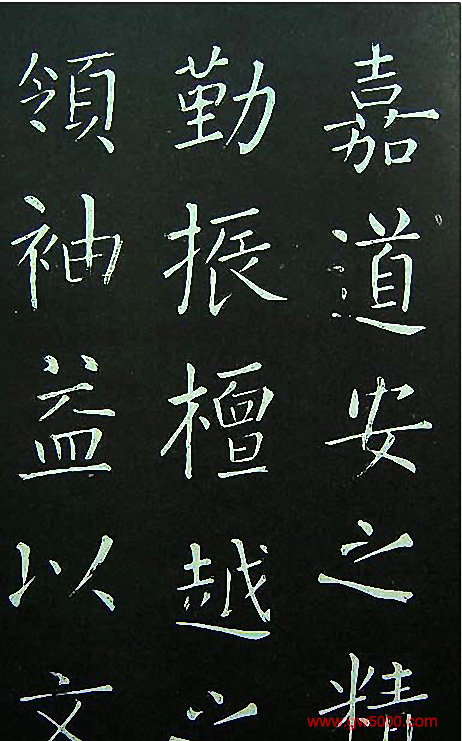 嘉道安之精
勤振檀越之
領袖益以文
www.gw5000.com